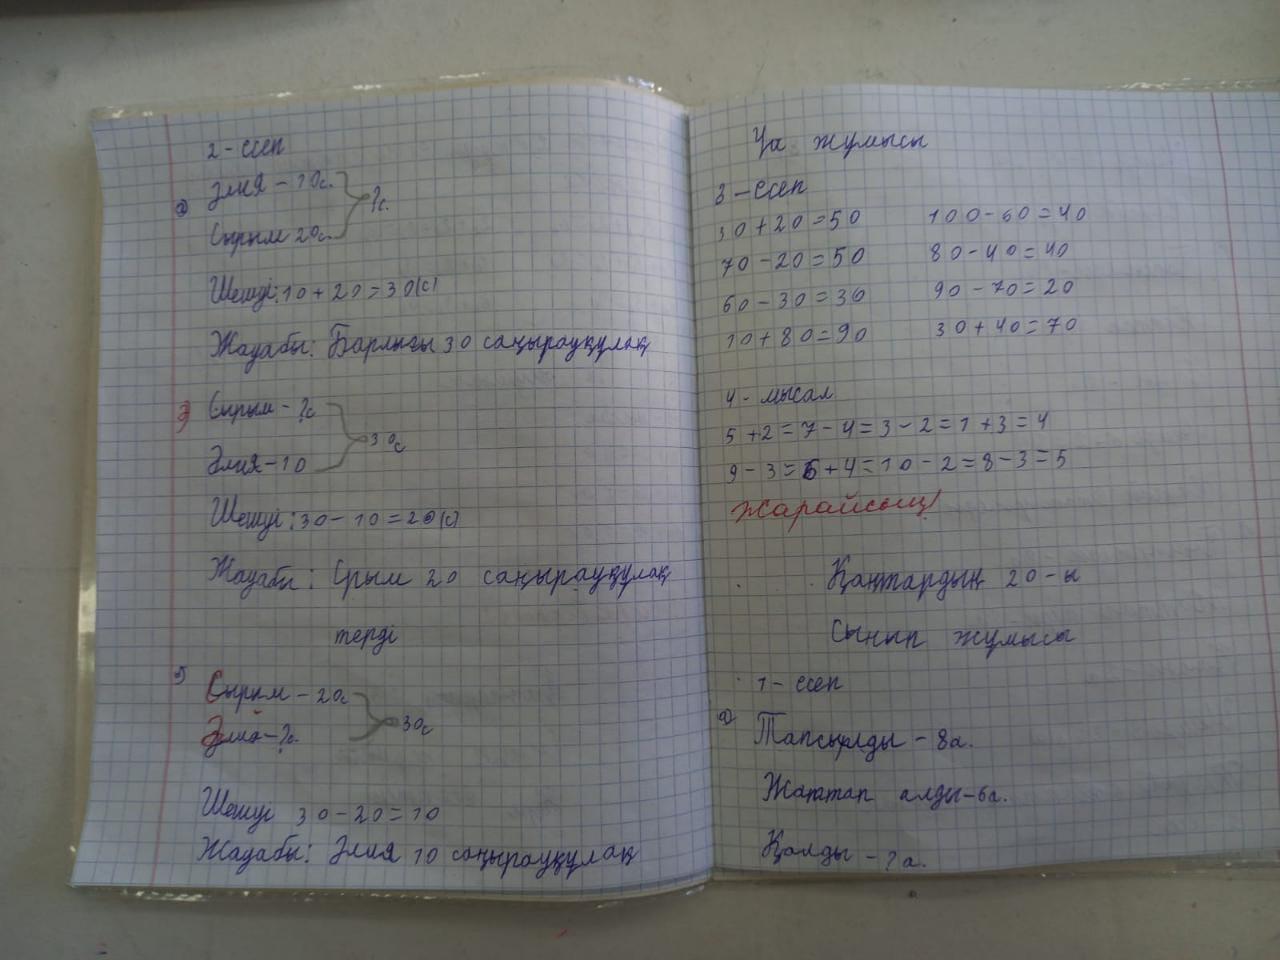 2 - есеп
а) Әлия - 10с.
?с.
Сырым 20с.
Шешуі: 10 + 20 = 30(с)
Жауабы: Барлығы 30 саңырауқұлақ
ә) Сырым - ?с
30с
Әлия - 10
Шешуі: 30 - 10 = 20(с)
Жауабы: Срым 20 саңырауқұлақ
терді
б) Сырым - 20с
30с
Әлия - ?с.
Шешуі 30 - 20 = 10
Жауабы: Әлия 10 саңырауқұлақ
Үй жұмысы
3 - есеп
30 + 20 = 50 100 - 60 = 40
70 - 20 = 50 80 - 40 = 40
60 - 30 = 30 90 - 70 = 20
10 + 80 = 90 30 + 40 = 70
4 - мысал
5 + 2 = 7 - 4 = 3 - 2 = 1 + 3 = 4
9 - 3 = 6 + 4 = 10 - 2 = 8 - 3 = 5
Жарайсың!
Қаңтардың 20-ы
Сынып жұмысы
1 - есеп
а) Тапсырылды - 8а.
Жаттап алды - 6а.
Қалды - ? а.